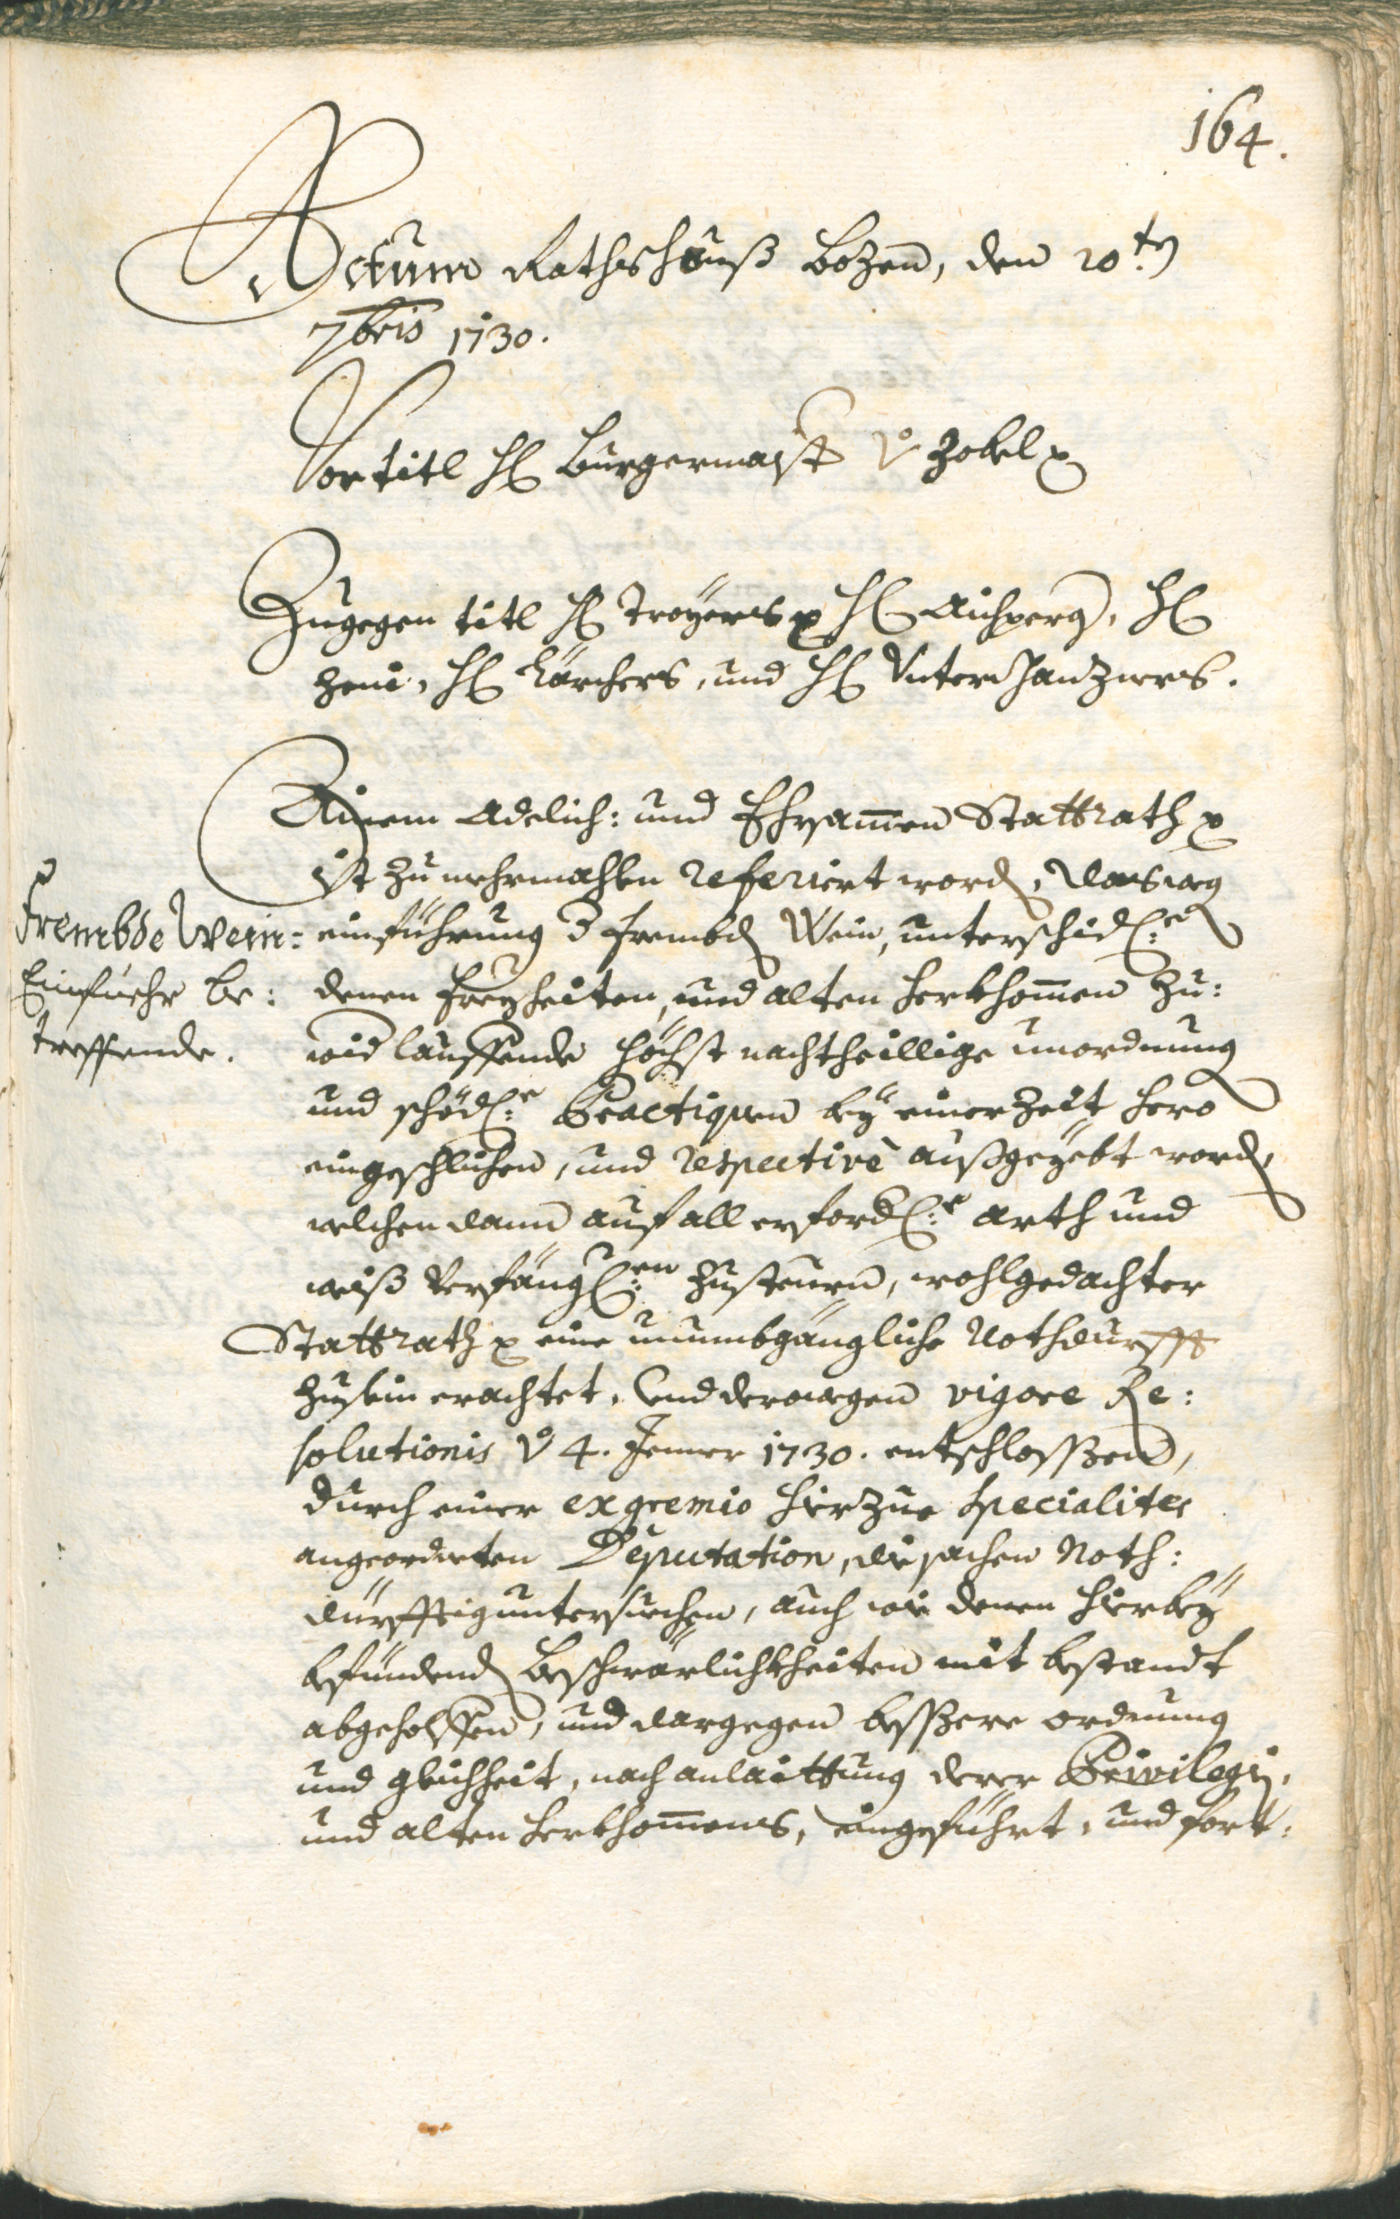 164.
Actum Rathshauß Bozen, den 20ten
7bris 1730.
Vor titl H: Burgermaister v: Zobel p
Zugegen titl H: Troyers p H: Aichperg, H:
Zeni, H: Kärchers, und H: Unterhanzners.
Ainem Adelich: und Ehrsammen Stattrath p
ist zu mehrmahlen referiert word, daß weg
Frembde Wein:
Einfuehr be:
treffende.
einführung d frembd Wein, unterschidl:e
denen Freyheiten, und alten herkhommen zu:
wid lauffende höchst nachtheillige unordnung
und schödl:e Practiquen bey einer Zeit hero
eingeschlichen, und respectivè außgeyebt word,
welchen dann auf all erfordl:e arth und
weiß verfängl:en zusteuren, wohlgedachter
Stattrath p eine unumbgängliche Nothdurfft
zusein erachtet, Und derowegen vigore Re:
solutionis v: 4. Jenner 1730. entschlossen,
durch einer ex gremio hierzue specialiter
angeordneten Deputation, die sachen Noth:
dürfftig untersuechen, auch wie denen hierbey
befundend Beschwärlichkheiten mit bestandt
abgeholffen, und dargegen bessere ordnung
und gleichheit, nach anlaittung derer Privilegien,
und alten herkhommens, eingeführt, und fort: